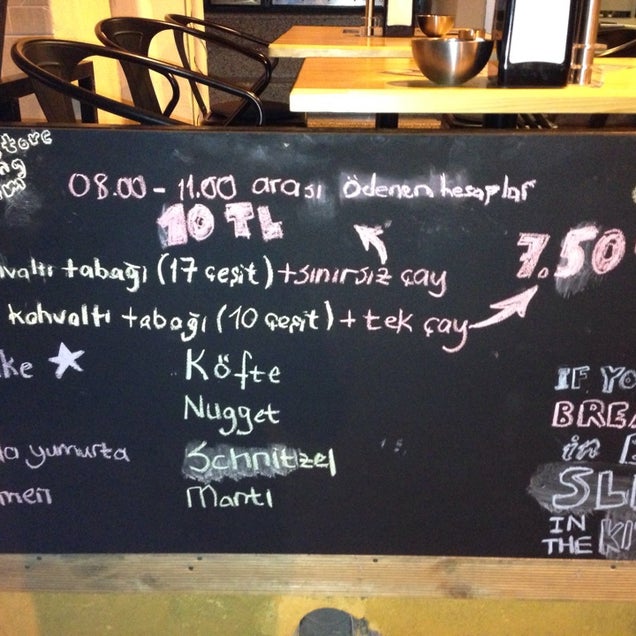 08.00 - 11.00 arası ödenen hesaplar
10 TL
7.50
tabağı (17 çeşit) + sınırsız çay
kahvaltı tabağı (10 çeşit) + tek çay
Köfte
Nugget
Schnitzel
Mantı
yumurta
IF YO
BREA
in
SL
IN THE KI